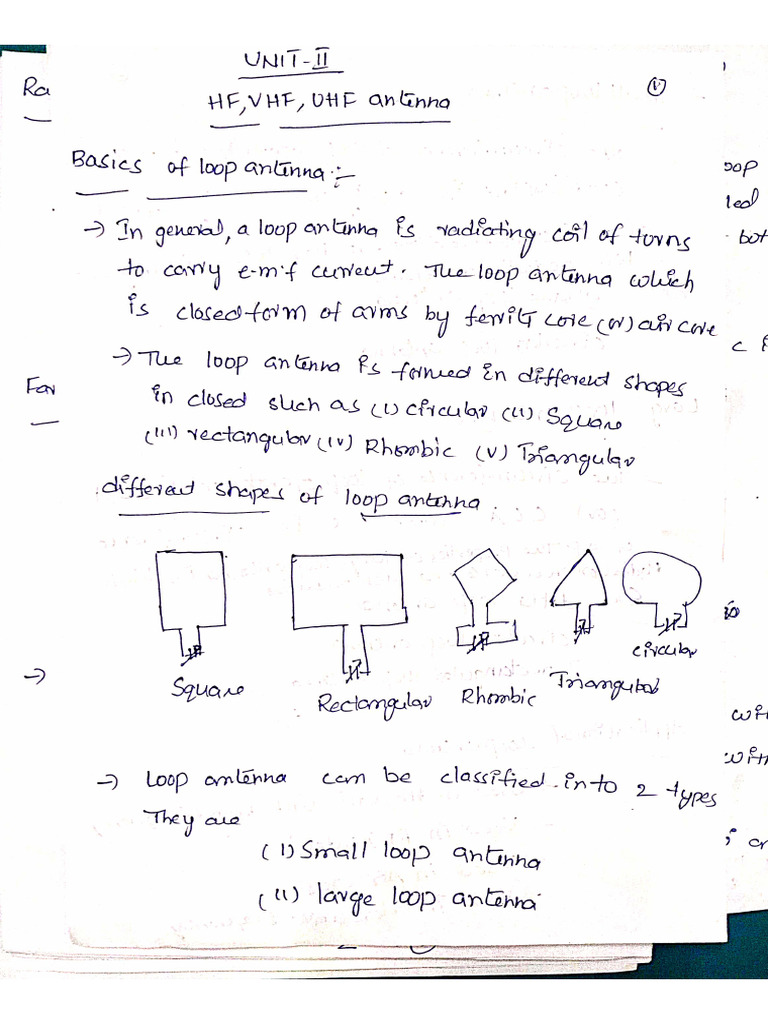 UNIT-II
HF, VHF, UHF antenna
Ra
Basics of loop antenna:-
oop
led
bot
→ In general, a loop antenna is radiating coil of turns
to carry e-m-f current. The loop antenna which
is closed form of arms by ferrit core (or) air core
c i
→ The loop antenna is formed in different shapes
in closed such as (i) circular (ii) Square
(iii) rectangular (iv) Rhombic (v) Triangular
Far
different shapes of loop antenna.
→ Square Rectangular Rhombic Triangular circular
wit
with
→ Loop antenna can be classified into 2 types
They are
(i) Small loop antenna
(ii) large loop antenna